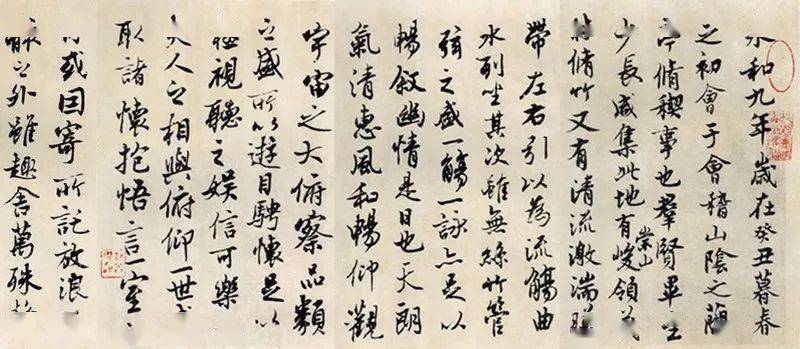 永和九年歲在癸丑暮春
之初會于會稽山陰之蘭
亭脩稧事也羣賢畢至
少長咸集此地有崇山峻領茂
林脩竹又有清流激湍映
帶左右引以為流觴曲
水列坐其次雖無絲竹管
弦之盛一觴一詠亦足以
暢敘幽情是日也天朗
氣清惠風和暢仰觀
宇宙之大俯察品類
之盛所以遊目騁懷足以
極視聽之娛信可樂
夫人之相與俯仰一世
取諸懷抱悟言一室
或因寄所託放浪
之外雖趣舍萬殊